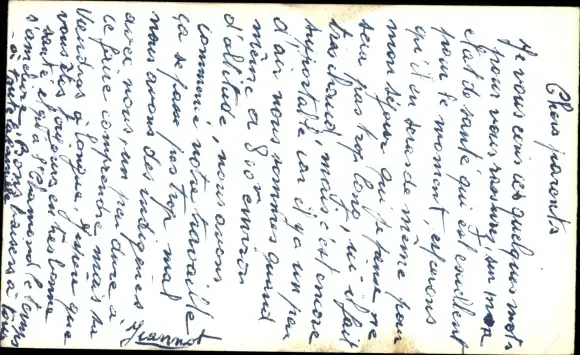 Chers parents
Je vous écris ces quelques mots
pour vous rassurez sur mon
état de santé qui est excellent
pour le moment, espérons
qu'il en sera de même pour
mon séjour qui je pense ne
sera pas trop long, ici il fait
très chaud, mais c'est encore
supportable car il y a un peu
d'air nous sommes quand
même à 800 m environ
d'altitude, nous avons
commencé notre travaille
ça se passe pas trop mal
nous avons des indigènes
avec nous, un peu dure à
ce faire comprendre mais sa
viendras à longue. J'espère que
vous êtes toujours en bonne
santé et qu'à St Amand le temps
s'améliore. Bons baisers à tous
à toute la famille
Jeannot